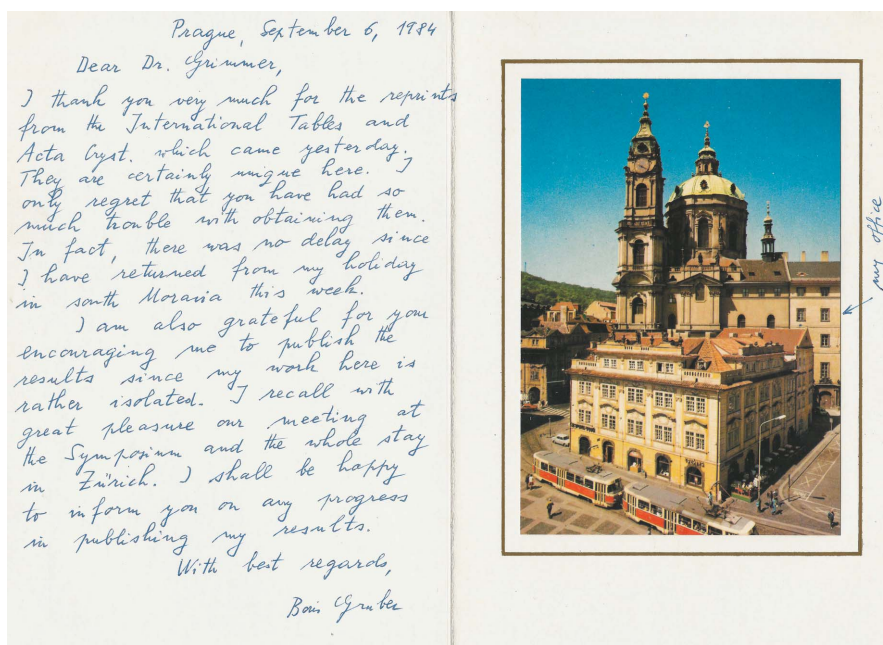 Prague, September 6, 1984
Dear Dr. Grimmer,
I thank you very much for the reprints
from the International Tables and
Acta Cryst. which came yesterday.
They are certainly unique here. I
only regret that you have had so
much trouble with obtaining them.
In fact, there was no delay since
I have returned from my holiday
in south Moravia this week.
I am also grateful for your
encouraging me to publish the
results since my work here is
rather isolated. I recall with
great pleasure our meeting at
the Symposium and the whole stay
in Zürich. I shall be happy
to inform you on any progress
in publishing my results.
With best regards,
Boris Gruber
my office